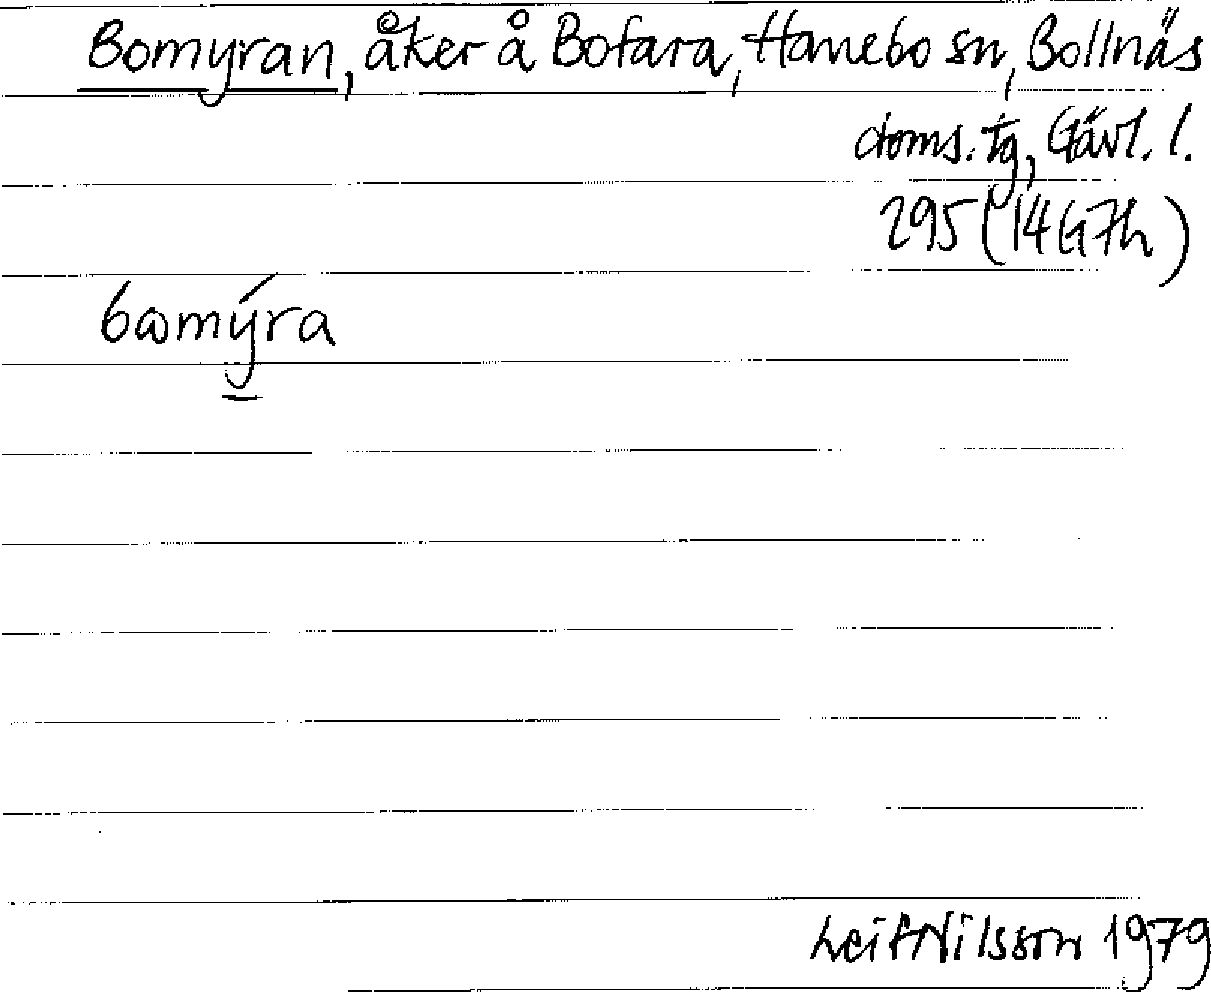 Bomyran, åker å Bofara, Hanebo sn, Bollnäs
doms. tg, Gävl. l.
295 (14G7h)
bωmý̠ra
Leif Nilsson 1979